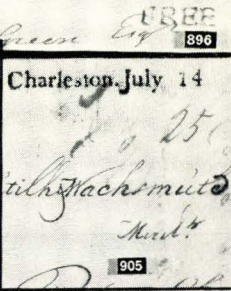 FREE
Green Esq
896
Charleston. July 14
25
Wachsmuth
Merch.t
905